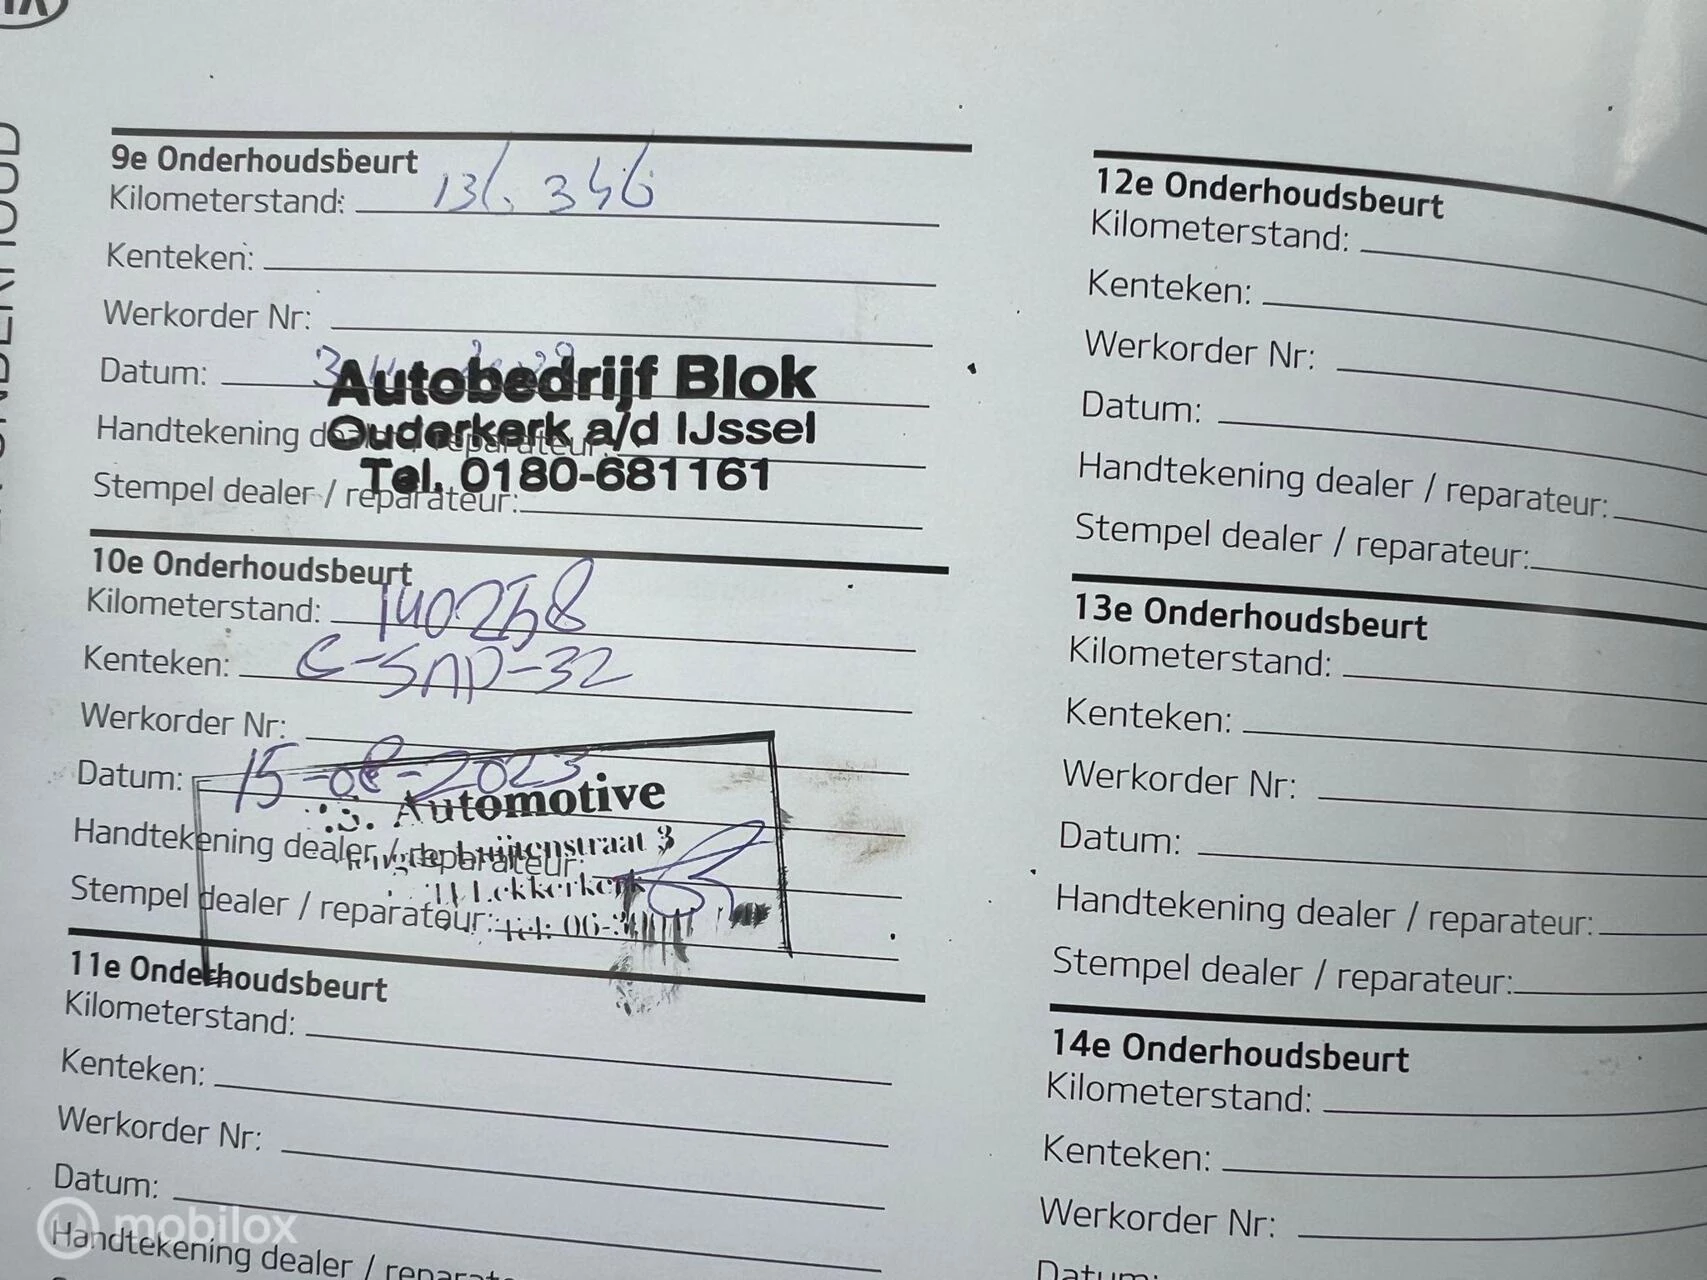 9e Onderhoudsbeurt
Kilometerstand: 136.346
Kenteken:
Werkorder Nr:
Datum:
Autobedrijf Blok
Handtekening dealer / reparateur:
Ouderkerk a/d IJssel
Tel. 0180-681161
Stempel dealer / reparateur:
10e Onderhoudsbeurt
Kilometerstand: 140258
Kenteken:
Werkorder Nr:
Datum: 15-08-2023
Automotive
Handtekening dealer / reparateur:
Stempel dealer / reparateur:
Tel: 06-
11e Onderhoudsbeurt
Kilometerstand:
Kenteken:
Werkorder Nr:
Datum:
Handtekening dealer /
12e Onderhoudsbeurt
Kilometerstand:
Kenteken:
Werkorder Nr:
Datum:
Handtekening dealer / reparateur:
Stempel dealer / reparateur:
13e Onderhoudsbeurt
Kilometerstand:
Kenteken:
Werkorder Nr:
Datum:
Handtekening dealer / reparateur:
Stempel dealer / reparateur:
14e Onderhoudsbeurt
Kilometerstand:
Kenteken:
Werkorder Nr:
Datum:
mobilox